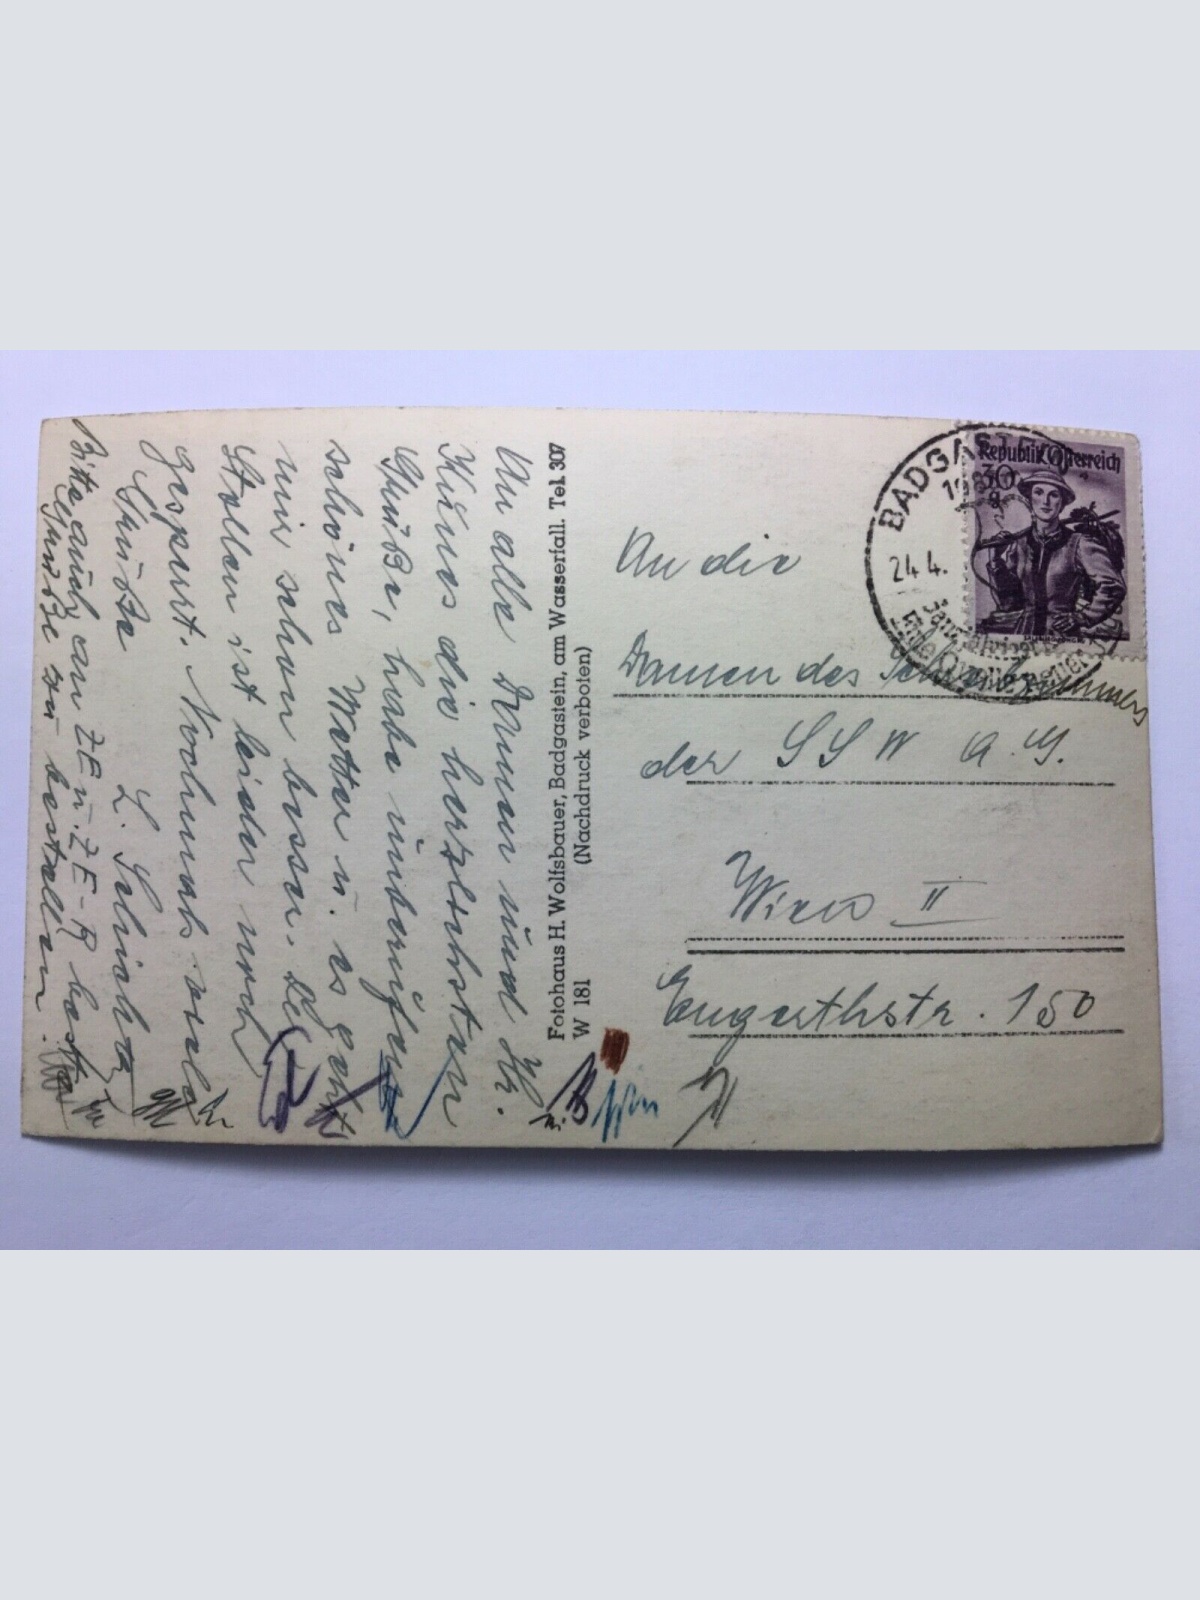 An alle Damen und Hr.
Kikus die herzlichsten
Grüße, habe
schönes Wetter u. es geht
mir schon besser. Im
Stollen ist leider noch
gespurt. Nochmals viele
Grüße
Bitte auch an ZE u. ZE-R beste
Grüße zu bestellen.
Fotohaus H. Wolfsbauer, Badgastein, am Wasserfall. Tel. 307
W 181 (Nachdruck verboten)
BADGASTEIN
24.4.
Republik Österreich
30 g
An die
Damen des
der SSW A.G.
Wien II
Engerthstr. 150